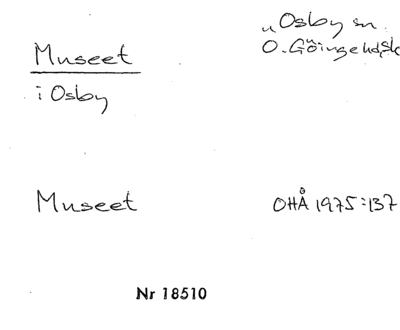 Museet
i Osby
„ Osby sn.
Ö. Göinge hd, Sk
Museet
OHÅ 1975:137
Nr 18510